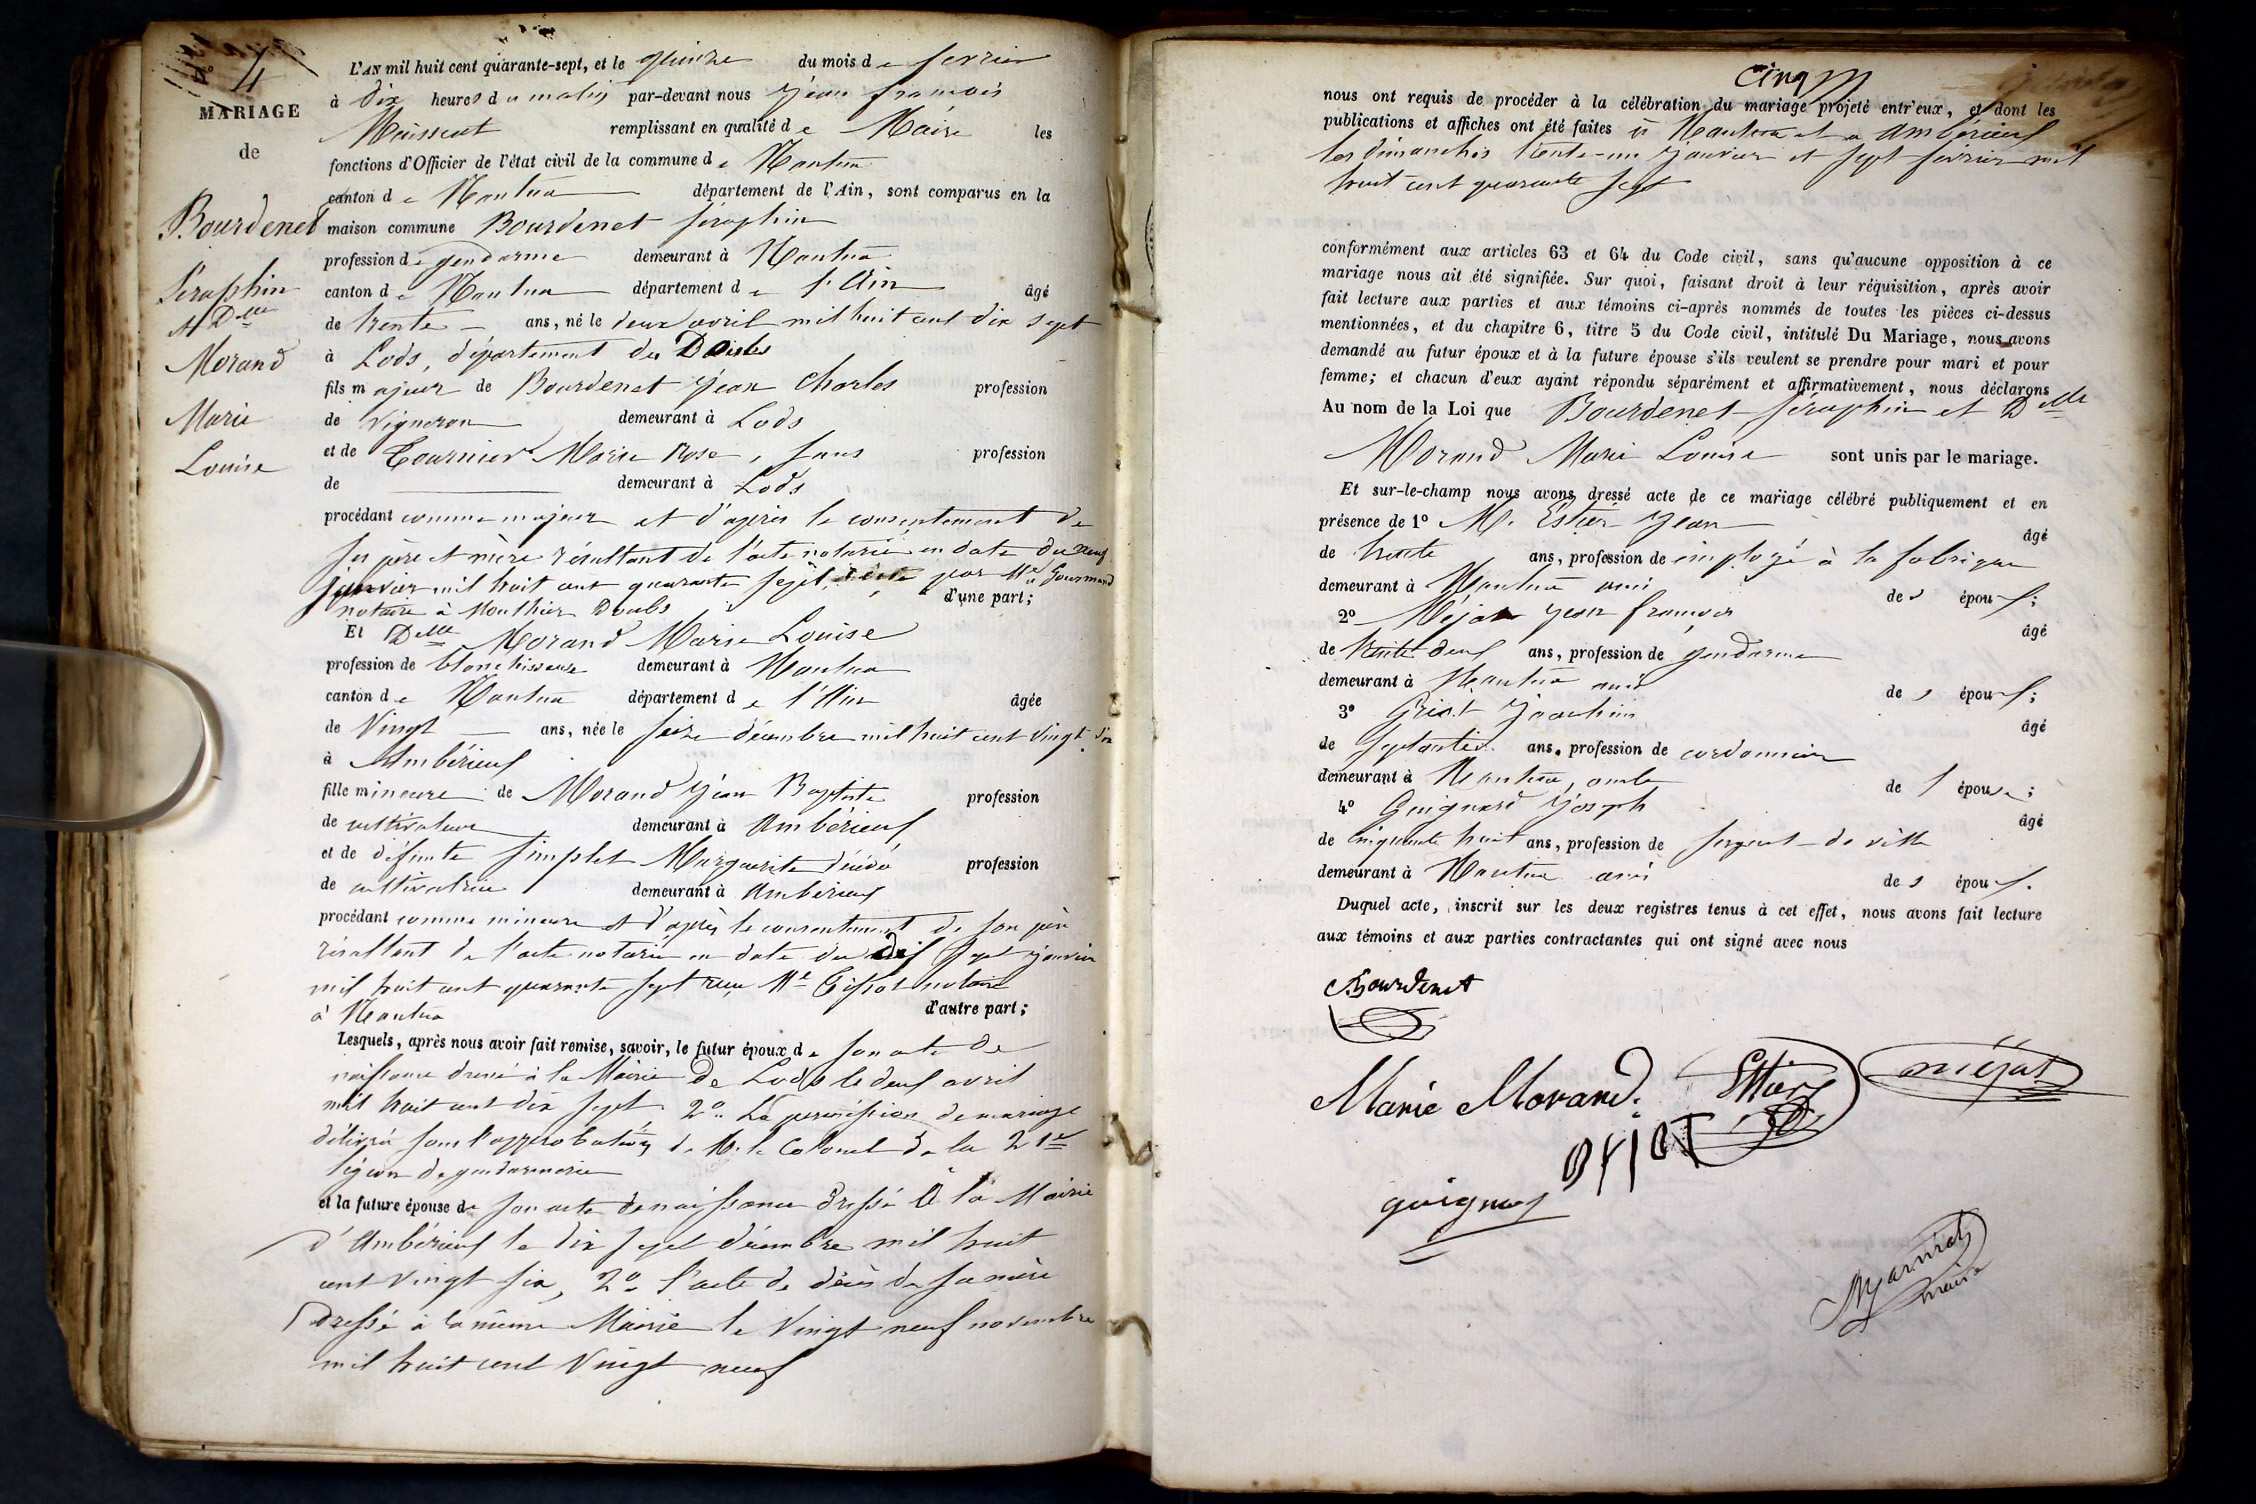 4
MARIAGE
de
Bourdenet
Séraphin
& Delle
Morand
Marie
Louise
L'AN mil huit cent quarante-sept, et le quinze du mois de fevrier
à dix heures du matin par-devant nous Jean françois
remplissant en qualité de Maire les
fonctions d'Officier de l'état civil de la commune de Nantua
canton de Nantua département de l'Ain, sont comparus en la
maison commune Bourdenet Séraphin
profession de gendarme demeurant à Nantua
canton de Nantua département de l'Ain âgé
de trente ans, né le deux avril mil huit cent dix sept
à Lods, département du Doubs
fils majeur de Bourdenet Jean Charles profession
de vigneron demeurant à Lods
et de Tournier Marie Rose, sans profession
de demeurant à Lods
procédant comme majeur et d'après le consentement de
ses père et mère résultant de l'acte notarié en date du neuf
janvier mil huit cent quarante sept, par Me Gourmand
notaire à Mouthier Doubs d'une part;
Et Delle Morand Marie Louise
profession de blanchisseuse demeurant à Nantua
canton de Nantua département de l'Ain âgée
de Vingt ans, née le seize décembre mil huit cent vingt six
à Ambérieuf
fille mineure de Morand Jean Baptiste profession
de cultivateur demeurant à Ambérieuf
et de défunte Simplet Marguerite décédé profession
de cultivatrice demeurant à Ambérieuf
procédant comme mineure et d'après le consentement de son père
résultant de l'acte notarié en date du dix sept janvier
mil huit cent quarante sept reçu Me notaire
à Nantua d'autre part;
Lesquels, après nous avoir fait remise, savoir, le futur époux de son acte de
naissance dressé à la Mairie de Lods le deux avril
mil huit cent dix sept. 2o La permission de mariage
délivré sous l'approbation de M. le Colonel de la 21e
légion de gendarmerie
et la future épouse de son acte de naissance dressé à la Mairie
d'Ambérieuf le dix sept décembre mil huit
cent vingt six, 2o l'acte de décès de sa mère
dressé à la même Mairie le Vingt neuf novembre
mil huit cent Vingt neuf
cinq
nous ont requis de procéder à la célébration du mariage projeté entr'eux, et dont les
publications et affiches ont été faites à Nantua et à Ambérieuf
les dimanches trente-un janvier et sept février mil
huit cent quarante sept
conformément aux articles 63 et 64 du Code civil, sans qu'aucune opposition à ce
mariage nous ait été signifiée. Sur quoi, faisant droit à leur réquisition, après avoir
fait lecture aux parties et aux témoins ci-après nommés de toutes les pièces ci-dessus
mentionnées, et du chapitre 6, titre 5 du Code civil, intitulé Du Mariage, nous avons
demandé au futur époux et à la future épouse s'ils veulent se prendre pour mari et pour
femme; et chacun d'eux ayant répondu séparément et affirmativement, nous déclarons
Au nom de la Loi que Bourdenet Séraphin et Delle
Morand Marie Louise sont unis par le mariage.
Et sur-le-champ nous avons dressé acte de ce mariage célébré publiquement et en
présence de 1º M. Estier Jean âgé
de trente ans, profession de employé à la fabrique
demeurant à Nantua ami des époux;
2º Méjat Jean françois âgé
de trente deux ans, profession de gendarme
demeurant à Nantua ami des époux;
3º Griot Joachim âgé
de ans, profession de cordonnier
demeurant à Nantua, oncle de l'épouse;
4º Guignard Joseph âgé
de Cinquante huit ans, profession de sergent de ville
demeurant à Nantua ami des époux.
Duquel acte, inscrit sur les deux registres tenus à cet effet, nous avons fait lecture
aux témoins et aux parties contractantes qui ont signé avec nous
Bourdenet
Marie Morand.
méjat
maire